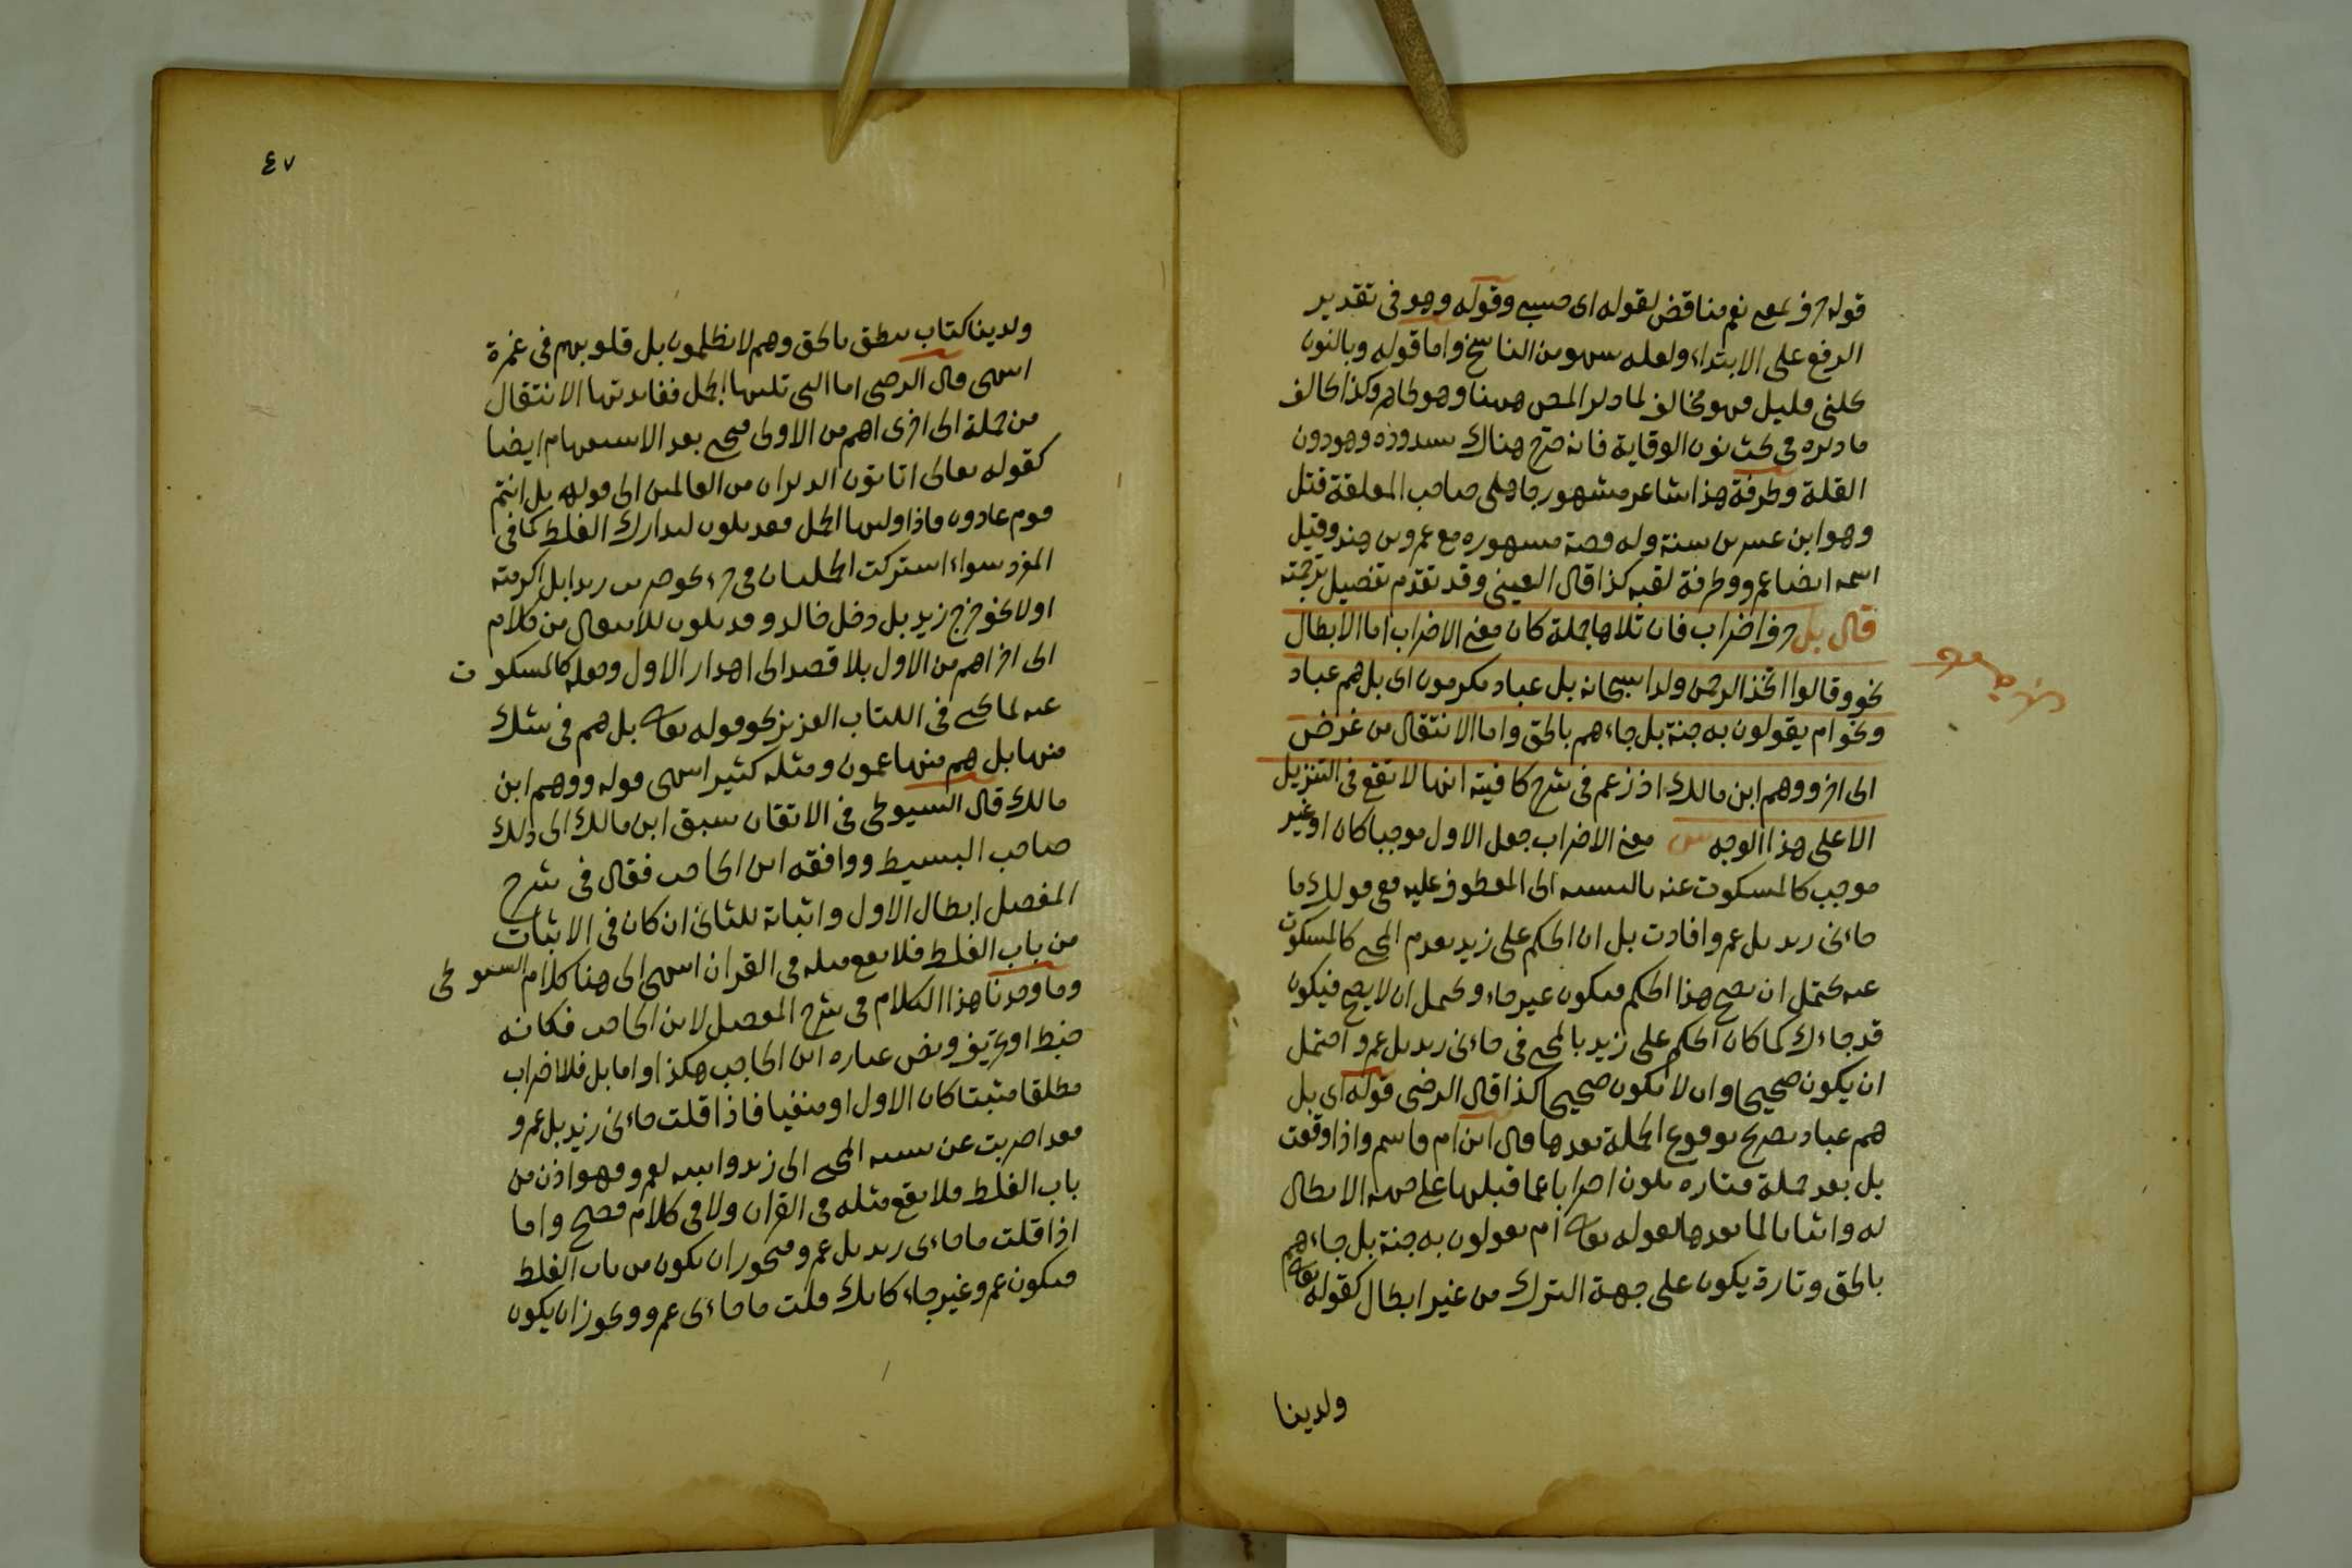 قوله حرف بمعنى نعم مناقض لقوله اى حسبى وقوله وهو فى تقدير
الرفع على الابتداء ولعله سهو من الناسخ واما قوله وبالنون
كلنى قليل فهو مخالف لما ذكر المص ههنا وهو ظاهر وكذا مخالف
ما ذكره فى بحث نون الوقاية فانه صرح هناك بشذوذه وهو دون
القلة وطرفة هذا شاعر مشهور جاهلى صاحب المعلقة قتل
وهو ابن عشرين سنة وله قصة مشهورة مع عمرو بن هند وقيل
اسمه ايضا عمرو وطرفة لقبه كذا قال العينى وقد تقدم تفصيل ترجمته
قال بل حرف اضراب فان تلاها جملة كان معنى الاضراب اما الابطال
نحو وقالوا اتخذ الرحمن ولدا سبحانه بل عباد مكرمون اى بل هم عباد
ونحو ام يقولون به جنة بل جاءهم بالحق واما الانتقال من غرض
الى اخر ووهم ابن مالك اذ زعم فى شرح كافيته انها لا تقع فى التنزيل
الا على هذا الوجه ش معنى الاضراب جعل الاول موجبا كان او غير
موجب كالمسكوت عنه بالنسبة الى المعطوف عليه ففى قولك ما
جاءنى زيد بل عمرو افادت بل ان الحكم على زيد بعدم المجى كالمسكوت
عنه يحتمل ان يصح هذا الحكم فيكون غير جاء ويحتمل ان لا يصح فيكون
قد جاءك كما كان الحكم على زيد بالمجى فى جاءنى زيد بل عمرو احتمل
ان يكون صحيحا وان لا يكون صحيحا كذا قال الرضى قوله اى بل
هم عباد تصريح بوقوع الجملة بعدها قال ابن ام قاسم واذا وقعت
بل بعد جملة فتارة يكون اضرابا عما قبلها على جهة الابطال
له واثباتا لما بعدها كقوله تعالى ام يقولون به جنة بل جاءهم
بالحق وتارة يكون على جهة الترك من غير ابطال كقوله تعالى
ولدينا
٤٧
ولدينا كتاب ينطق بالحق وهم لا يظلمون بل قلوبهم فى غمرة
انتهى قال الرضى اما التى تليها الجمل ففائدتها الانتقال
من جملة الى اخرى اهم من الاولى فتجى بعد الاستفهام ايضا
كقوله تعالى اتاتون الذكران من العالمين الى قوله بل انتم
قوم عادون واذا وليها الجمل فقد يكون لتدارك الغلط كما فى
المفرد سواء اشتركت الجملتان فى جزء نحو ضربت زيدا بل اكرمته
اولا نحو خرج زيد بل دخل خالد وقد يكون للانتقال من كلام
الى اخر اهم من الاول بلا قصد الى اهدار الاول وجعله كالمسكوت
عنه كما يجى فى الكتاب العزيز نحو قوله تعالى بل هم فى شك
منها بل هم منها عمون ومثله كثير انتهى قوله ووهم ابن
مالك قال السيوطى فى الاتقان سبق ابن مالك الى ذلك
صاحب البسيط ووافقه ابن الحاجب فقال فى شرح
المفصل ابطال الاول واثباته للثانى ان كان فى الاثبات
من باب الغلط فلا يقع مثله فى القران انتهى الى هنا كلام السيوطى
وما وجدنا هذا الكلام فى شرح المفصل لابن الحاجب فكانه
خبط او تحريف ونص عبارة ابن الحاجب هكذا واما بل فللاضراب
مطلقا مثبتا كان الاول او منفيا فاذا قلت جاءنى زيد بل عمرو
فقد اضربت عن نسبة المجى الى زيد واثبته لعمرو فهو اذن من
باب الغلط فلا يقع مثله فى القران ولا فى كلام فصيح واما
اذا قلت ما جاءنى زيد بل عمرو فيجوز ان يكون من باب الغلط
فيكون عمرو غير جاء كانك قلت ما جاءنى عمرو ويجوز ان يكون